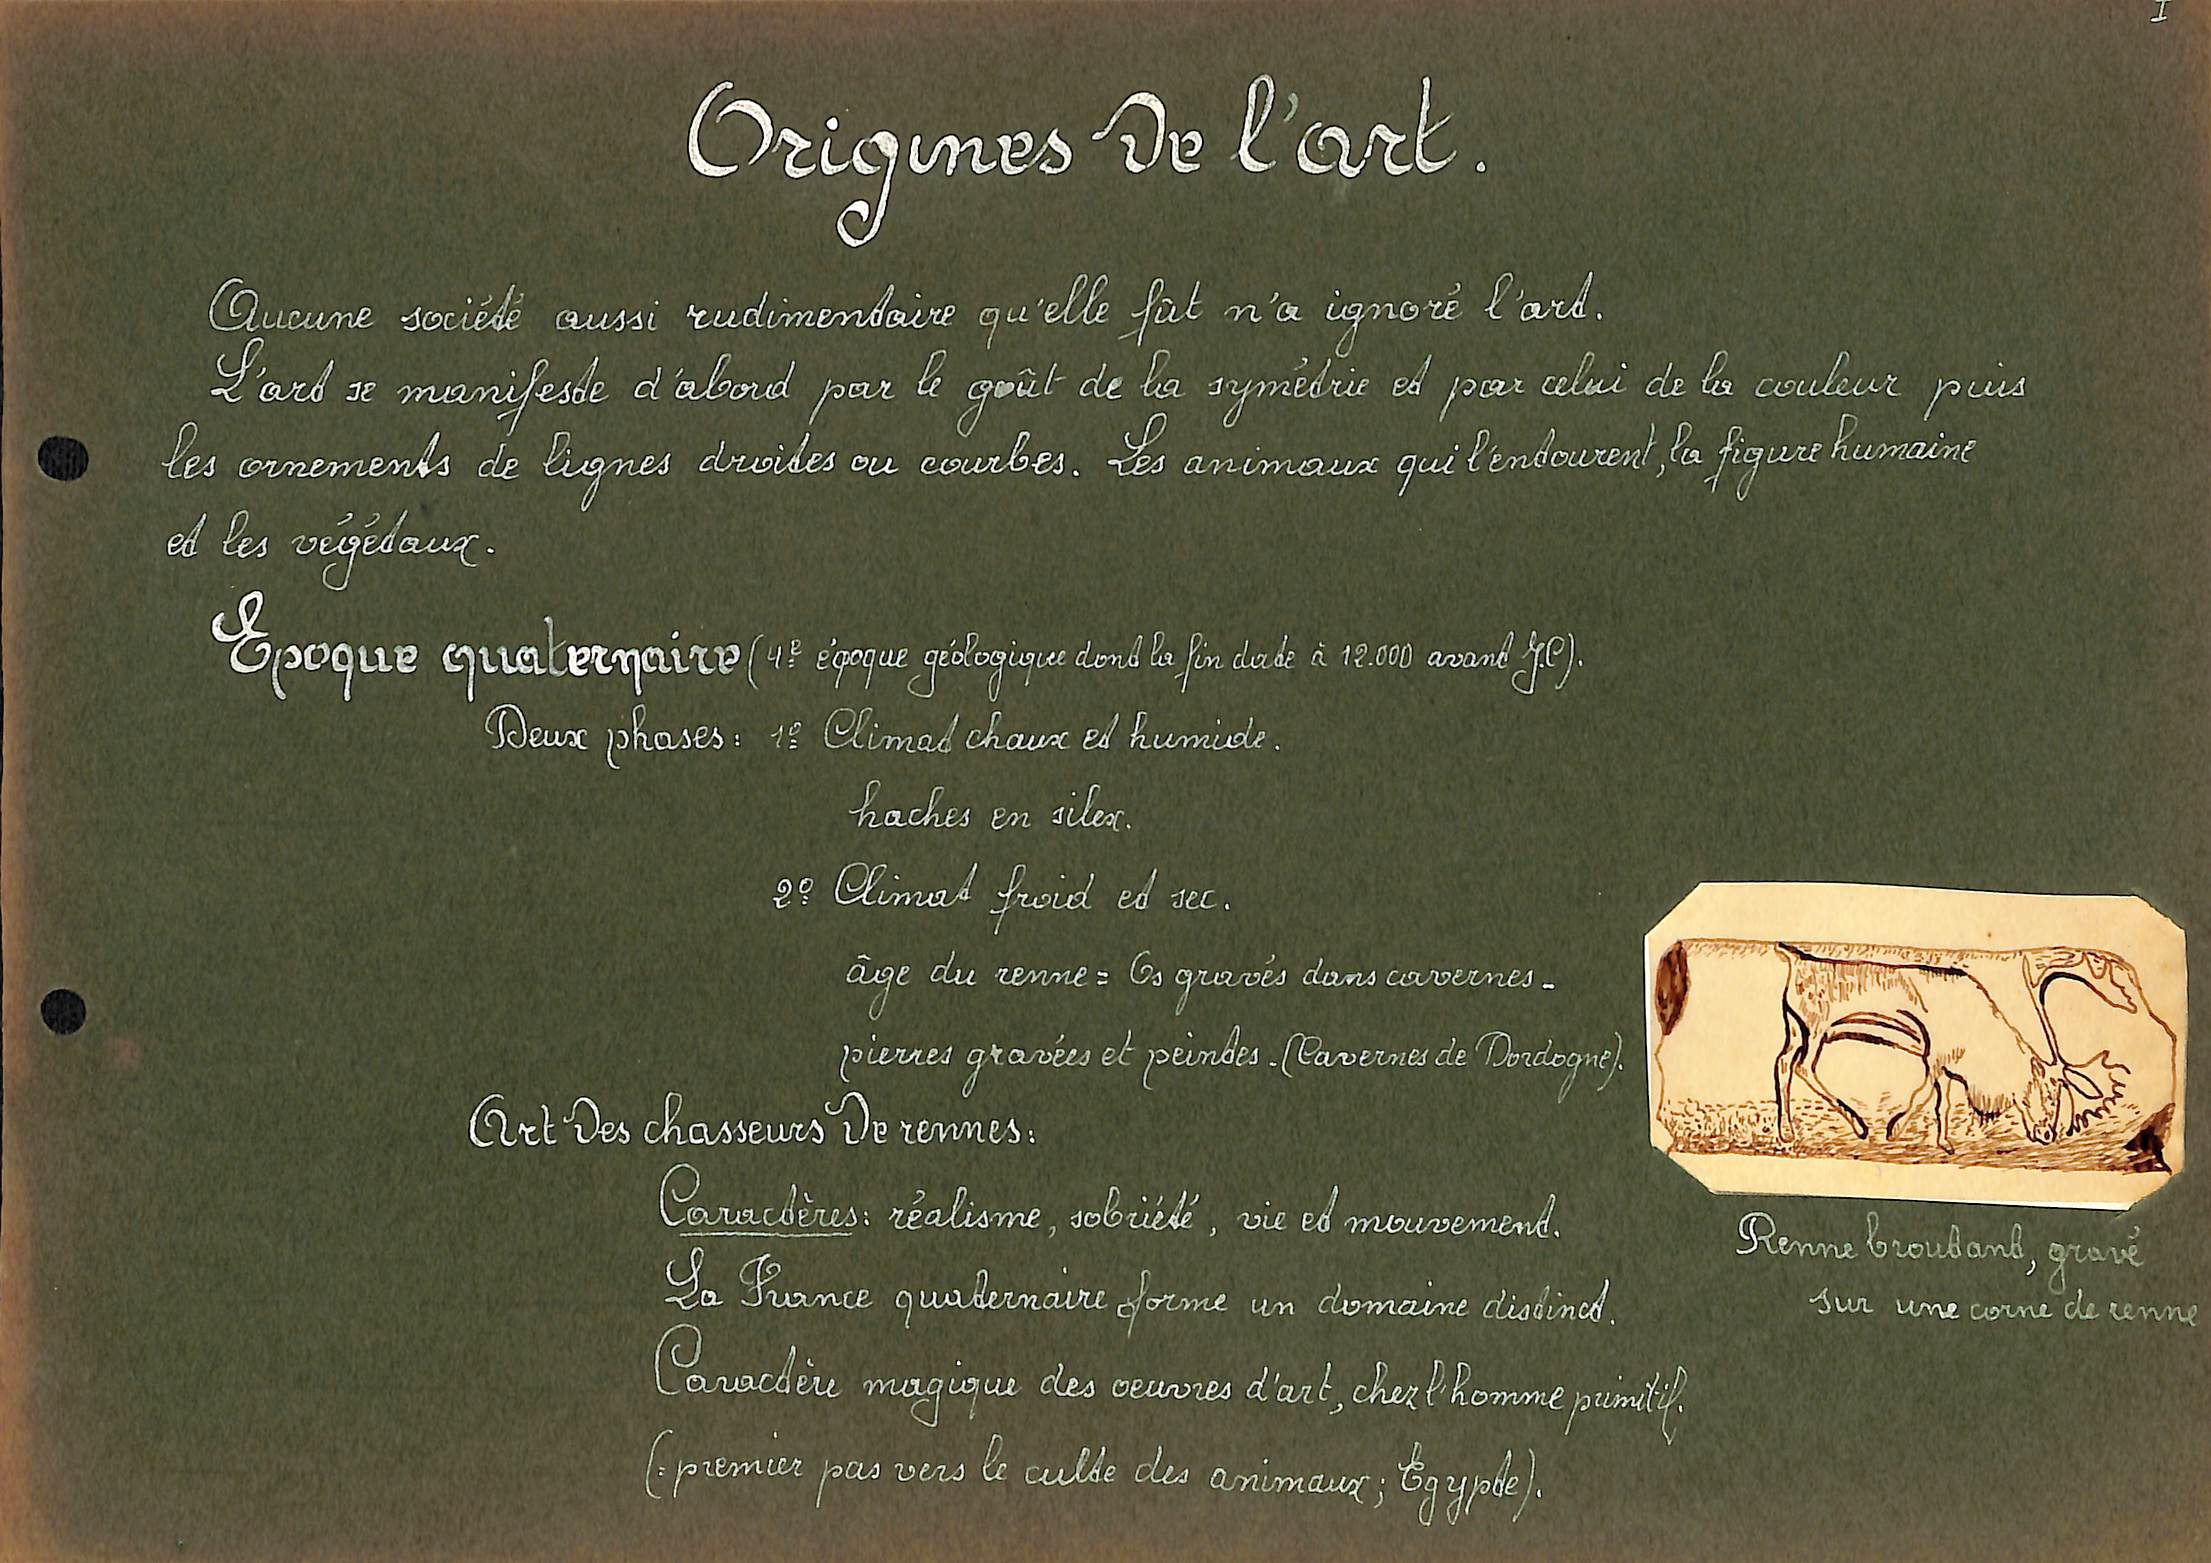 I
Origines de l'art.
Aucune société aussi rudimentaire qu'elle fût n'a ignoré l'art.
L'art se manifeste d'abord par le goût de la symétrie et par celui de la couleur puis
les ornements de lignes droites ou courbes. Les animaux qui l'entourent, la figure humaine
et les végétaux.
Epoque quaternaire (4e époque géologique dont la fin date à 12.000 avant J.C).
Deux phases : 1º Climat chaux et humide.
haches en silex.
2º Climat froid et sec.
âge du renne = Os gravés dans cavernes -
pierres gravées et peintes - (Cavernes de Dordogne).
Art des chasseurs de rennes :
Caractères : réalisme, sobriété, vie et mouvement.
La France quaternaire forme un domaine distinct.
Caractère magique des oeuvres d'art, chez l'homme primitif.
(: premier pas vers le culte des animaux ; Egypte).
Renne broutant, gravé
sur une corne de renne